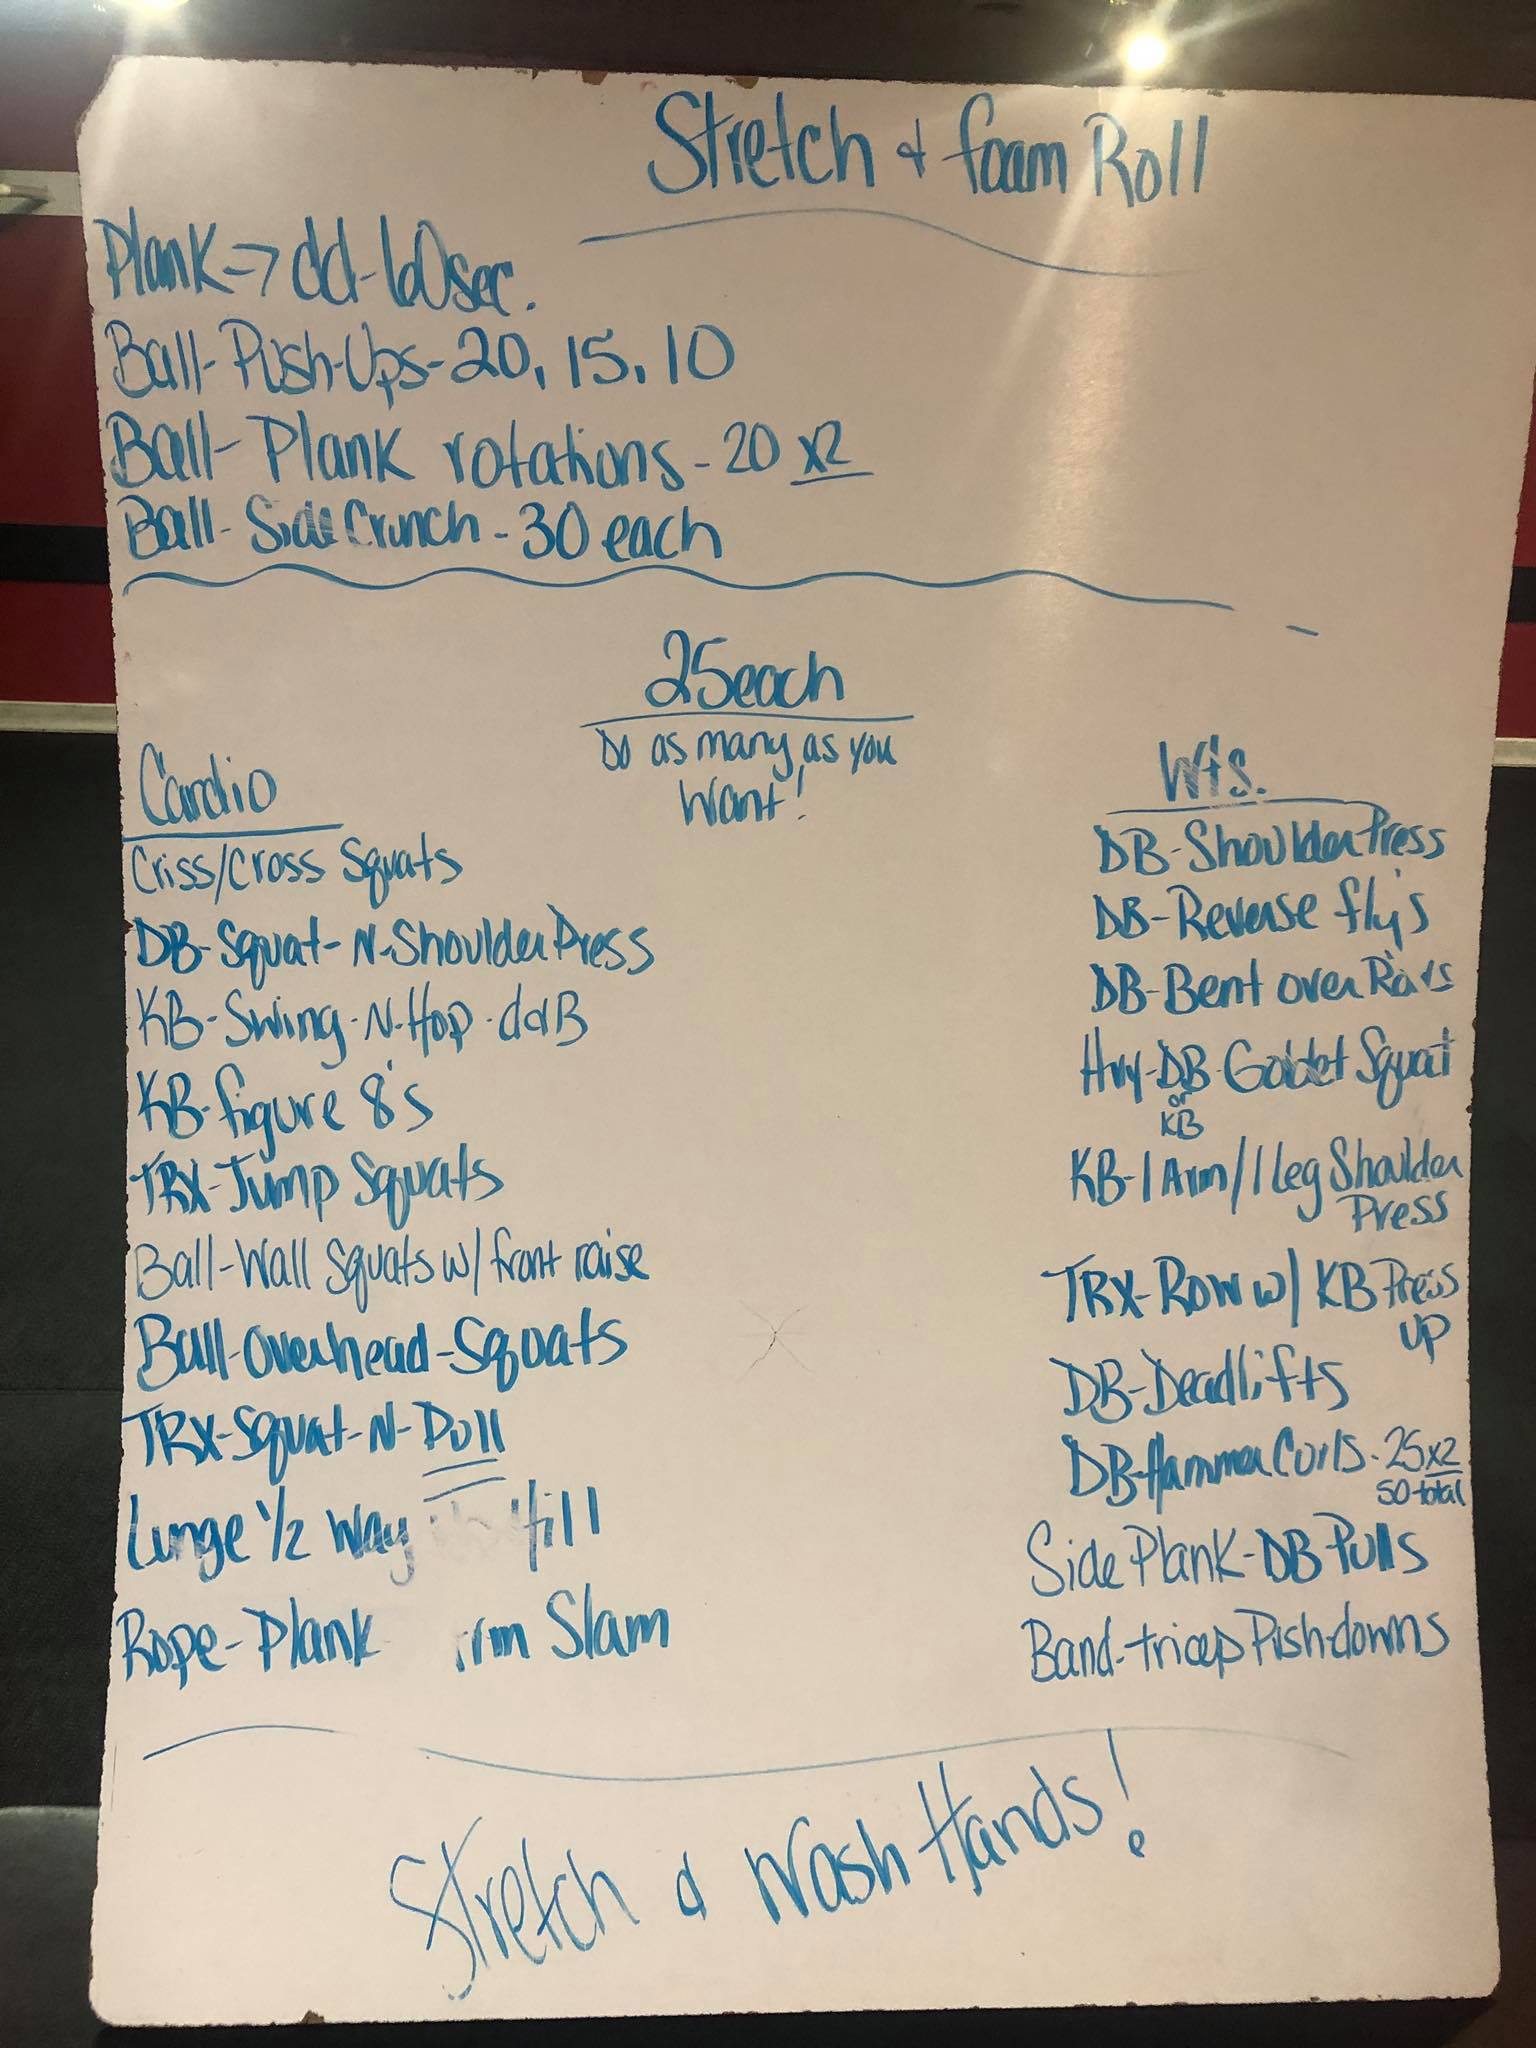 Stretch & foam Roll
Plank -> ddd-60sec.
Ball-Push-Ups-20, 15, 10
Ball-Plank rotations-20 x2
Ball-Side Crunch-30 each
25 each
Do as many as you
Want!
Cardio
Criss/Cross Squats
DB-Squat-N-Shoulder Press
KB-Swing-N-Hop-ddB
KB-figure 8's
TRX-Jump Squats
Ball-Wall Squats w/ front raise
Ball-Overhead-Squats
TRX-Squat-N-Pull
Lunge 1/2 Way Hill
Rope-Plank Slam
Wts.
DB-Shoulder Press
DB-Reverse fly's
DB-Bent over Rows
Hvy-DB-Goblet Squat
or
KB
KB-1 Arm/1 Leg Shoulder
Press
TRX-Row w/ KB Press
UP
DB-Deadlifts
DB-Hammer Curls-25x2
50 total
Side Plank-DB Pulls
Band-tricep Pushdowns
Stretch & Wash Hands!